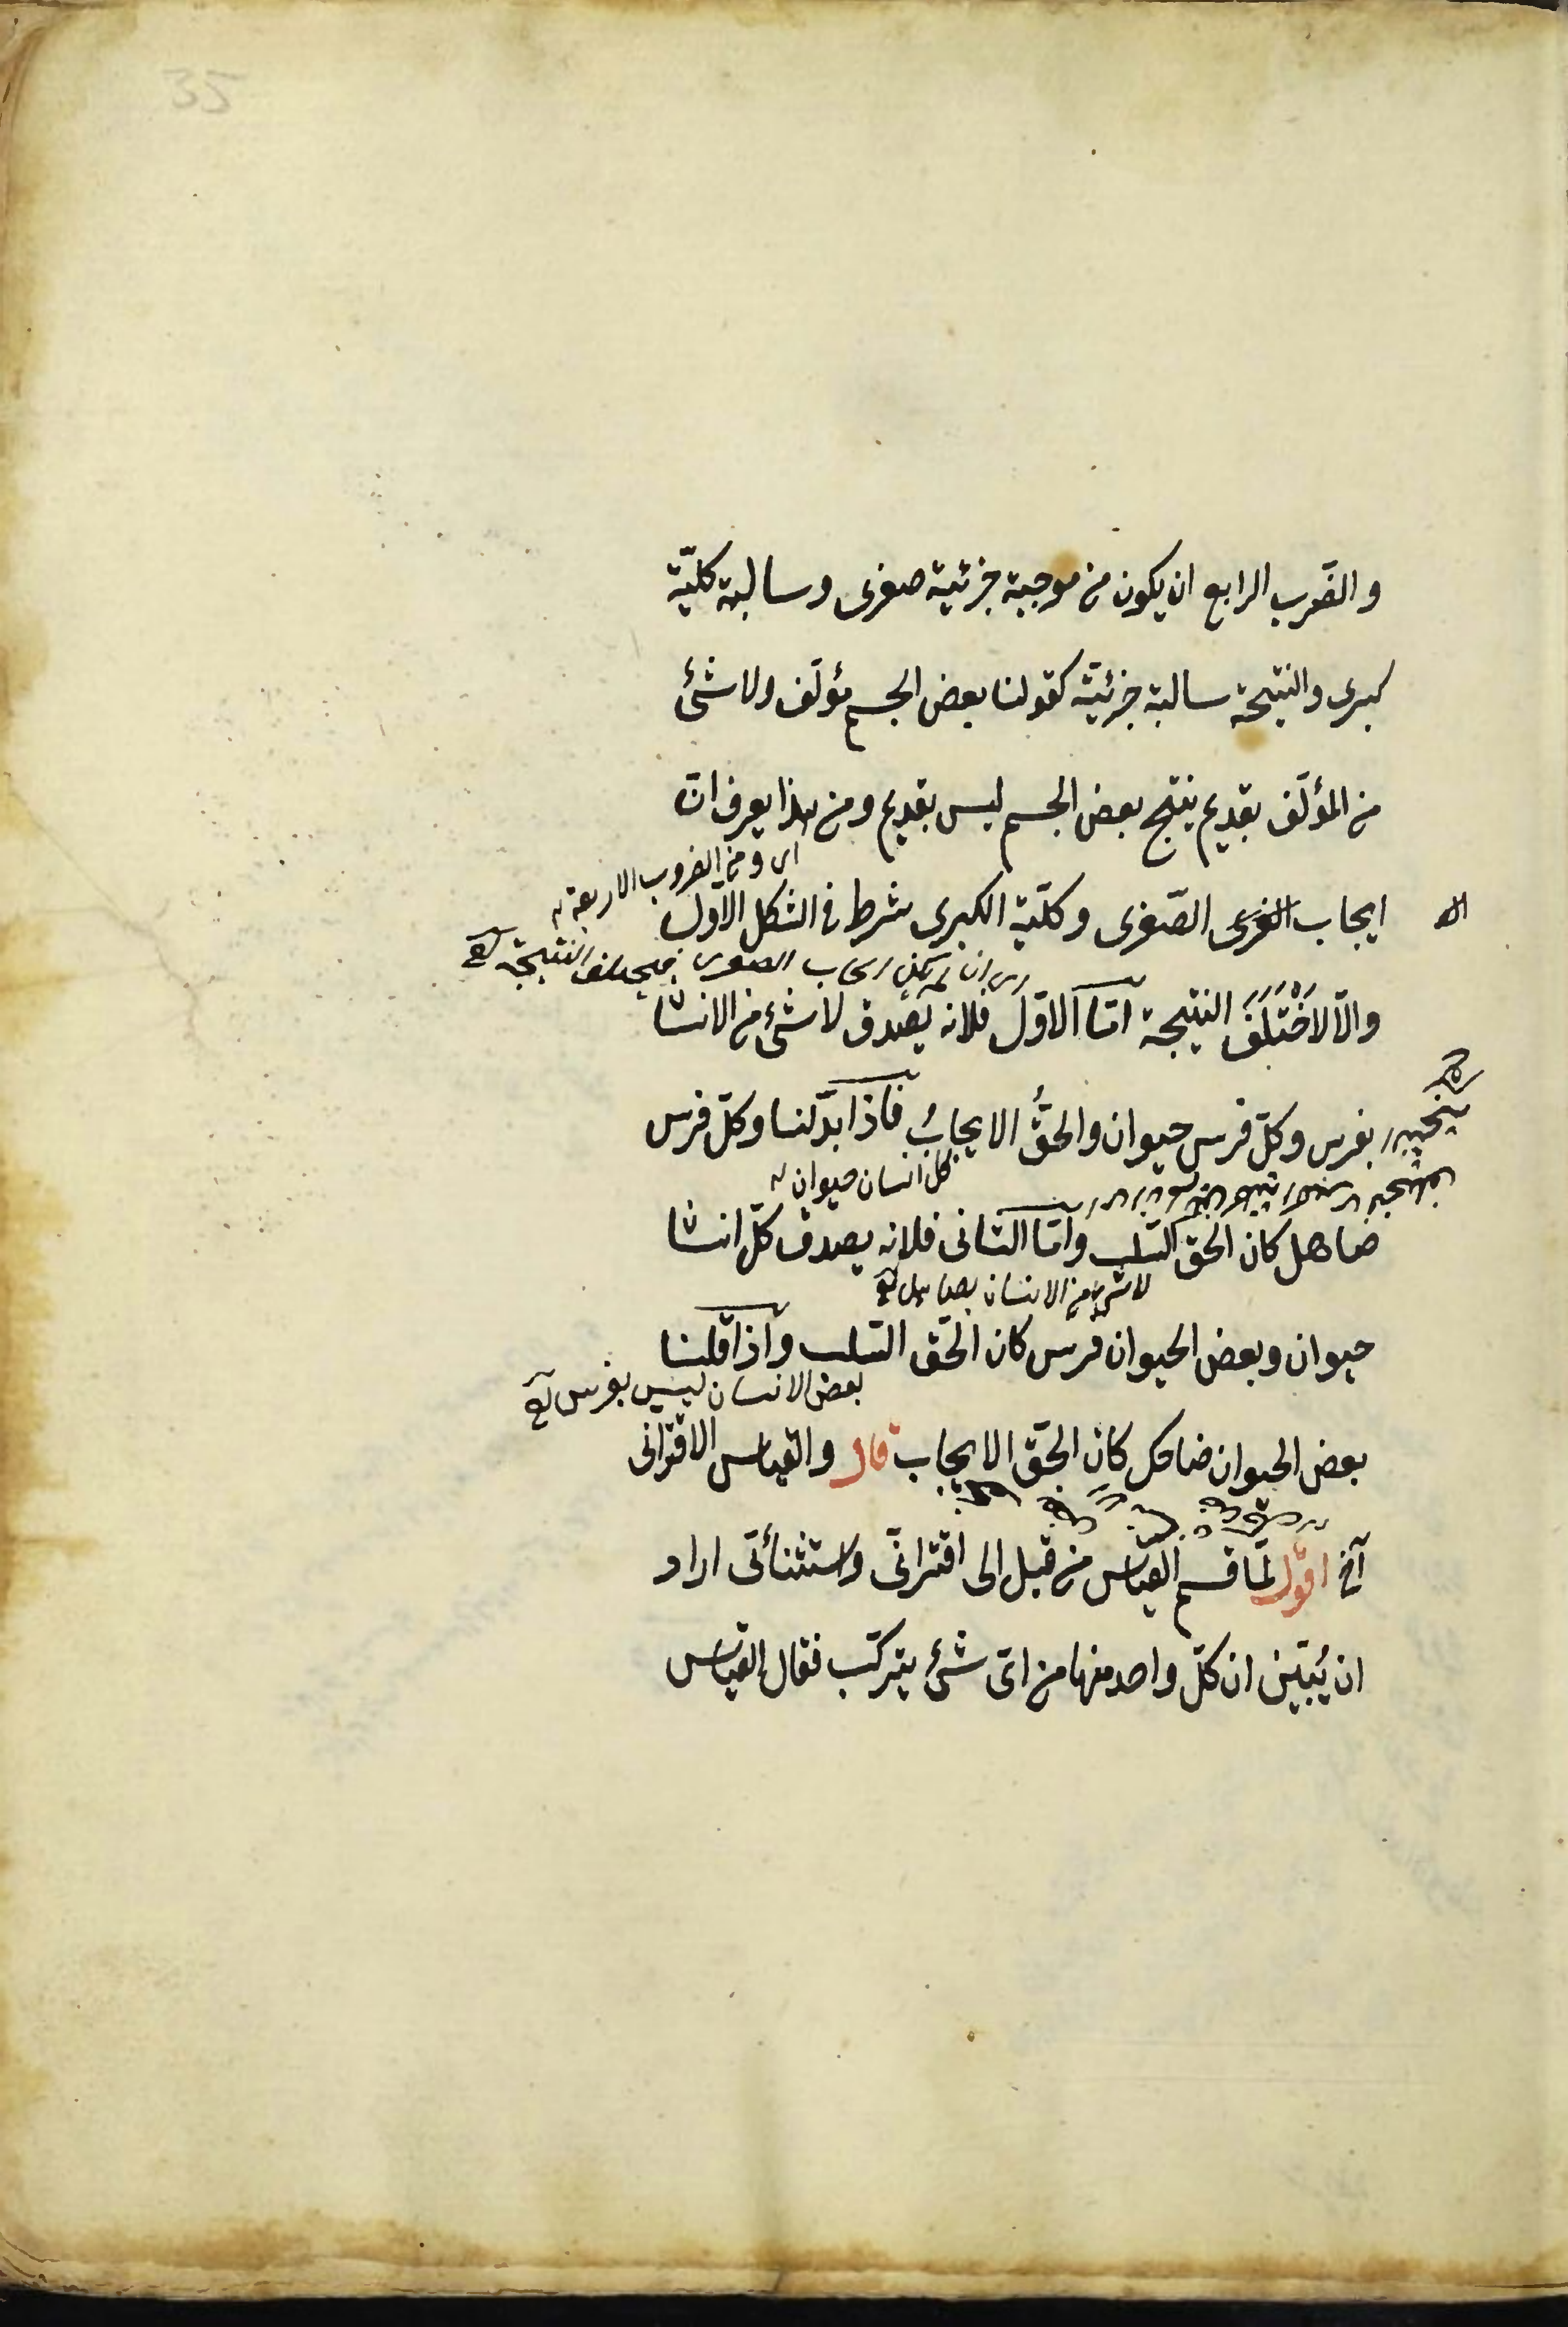 35
والضّرب الرابع ان يكون من موجبة جزئية صغرى وسالبة كليّة
كبرى والنتيجة سالبة جزئيّة كقولنا بعض الجسم مؤلّف ولا شئ
من المؤلّف بقديم ينتج بعض الجسم ليس بقديم ومن هذا يعرف انّ
اى ومن الضروب الاربعة
ايجاب الصّغرى وكلّية الكبرى شرط فى الشكل الاوّل
اى ان لم يكن ايجاب الصغرى فيختلف النتيجة
والّا لاخْتَلَفَ النتيجة امّا الاوّل فلانه يصدق لا شئ من الانسا
بفرس وكلّ فرس حيوان والحقُّ الايجابُ فاذا بدّلنا وكلّ فرس
كل انسان حيوان
صاهل كان الحق السّلب وامّا الثانى فلانه يصدق كلّ انسا
لا شئ من الانسان بصاهل
حيوان وبعض الحيوان فرس كان الحقّ السّلب واذا قلنا
بعض الانسان ليس بفرس
بعض الحيوان ضاحك كان الحقّ الايجاب قال والقياس الاقترانى
آخ اقول لمّا قسم القياس من قبل الى اقترانىّ واستثنائىّ اراد
ان يُبيّن ان كلّ واحد منهما من اىّ شئ يتركّب فقال القياس